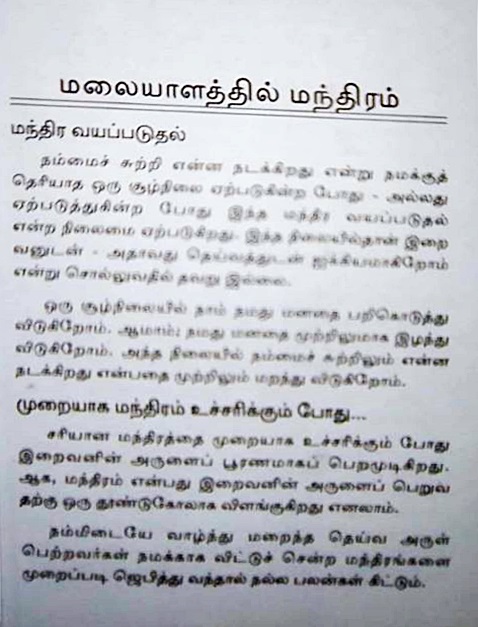 மலையாளத்தில் மந்திரம்
மந்திர வயப்படுதல்
நம்மைச் சுற்றி என்ன நடக்கிறது என்று நமக்குத்
தெரியாத ஒரு சூழ்நிலை ஏற்படுகின்ற போது - அல்லது
ஏற்படுத்துகின்ற போது இந்த மந்திர வயப்படுதல்
என்ற நிலைமை ஏற்படுகிறது- இந்த நிலையில்தான் இறை
வனுடன் - அதாவது தெய்வத்துடன் ஐக்கியமாகிறோம்
என்று சொல்லுவதில் தவறு இல்லை.
ஒரு சூழ்நிலையில் நாம் நமது மனதை பறிகொடுத்து
விடுகிறோம். ஆமாம்; நமது மனதை முற்றிலுமாக இழந்து
விடுகிறோம். அந்த நிலையில் நம்மைச் சுற்றிலும் என்ன
நடக்கிறது என்பதை முற்றிலும் மறந்து விடுகிறோம்.
முறையாக மந்திரம் உச்சரிக்கும் போது...
சரியான மந்திரத்தை முறையாக உச்சரிக்கும் போது
இறைவனின் அருளைப் பூரணமாகப் பெறமுடிகிறது.
ஆக, மந்திரம் என்பது இறைவனின் அருளைப் பெறுவ
தற்கு ஒரு தூண்டுகோலாக விளங்குகிறது எனலாம்.
நம்மிடையே வாழ்ந்து மறைந்த தெய்வ அருள்
பெற்றவர்கள் நமக்காக விட்டுச் சென்ற மந்திரங்களை
முறைப்படி ஜெபித்து வந்தால் நல்ல பலன்கள் கிட்டும்.